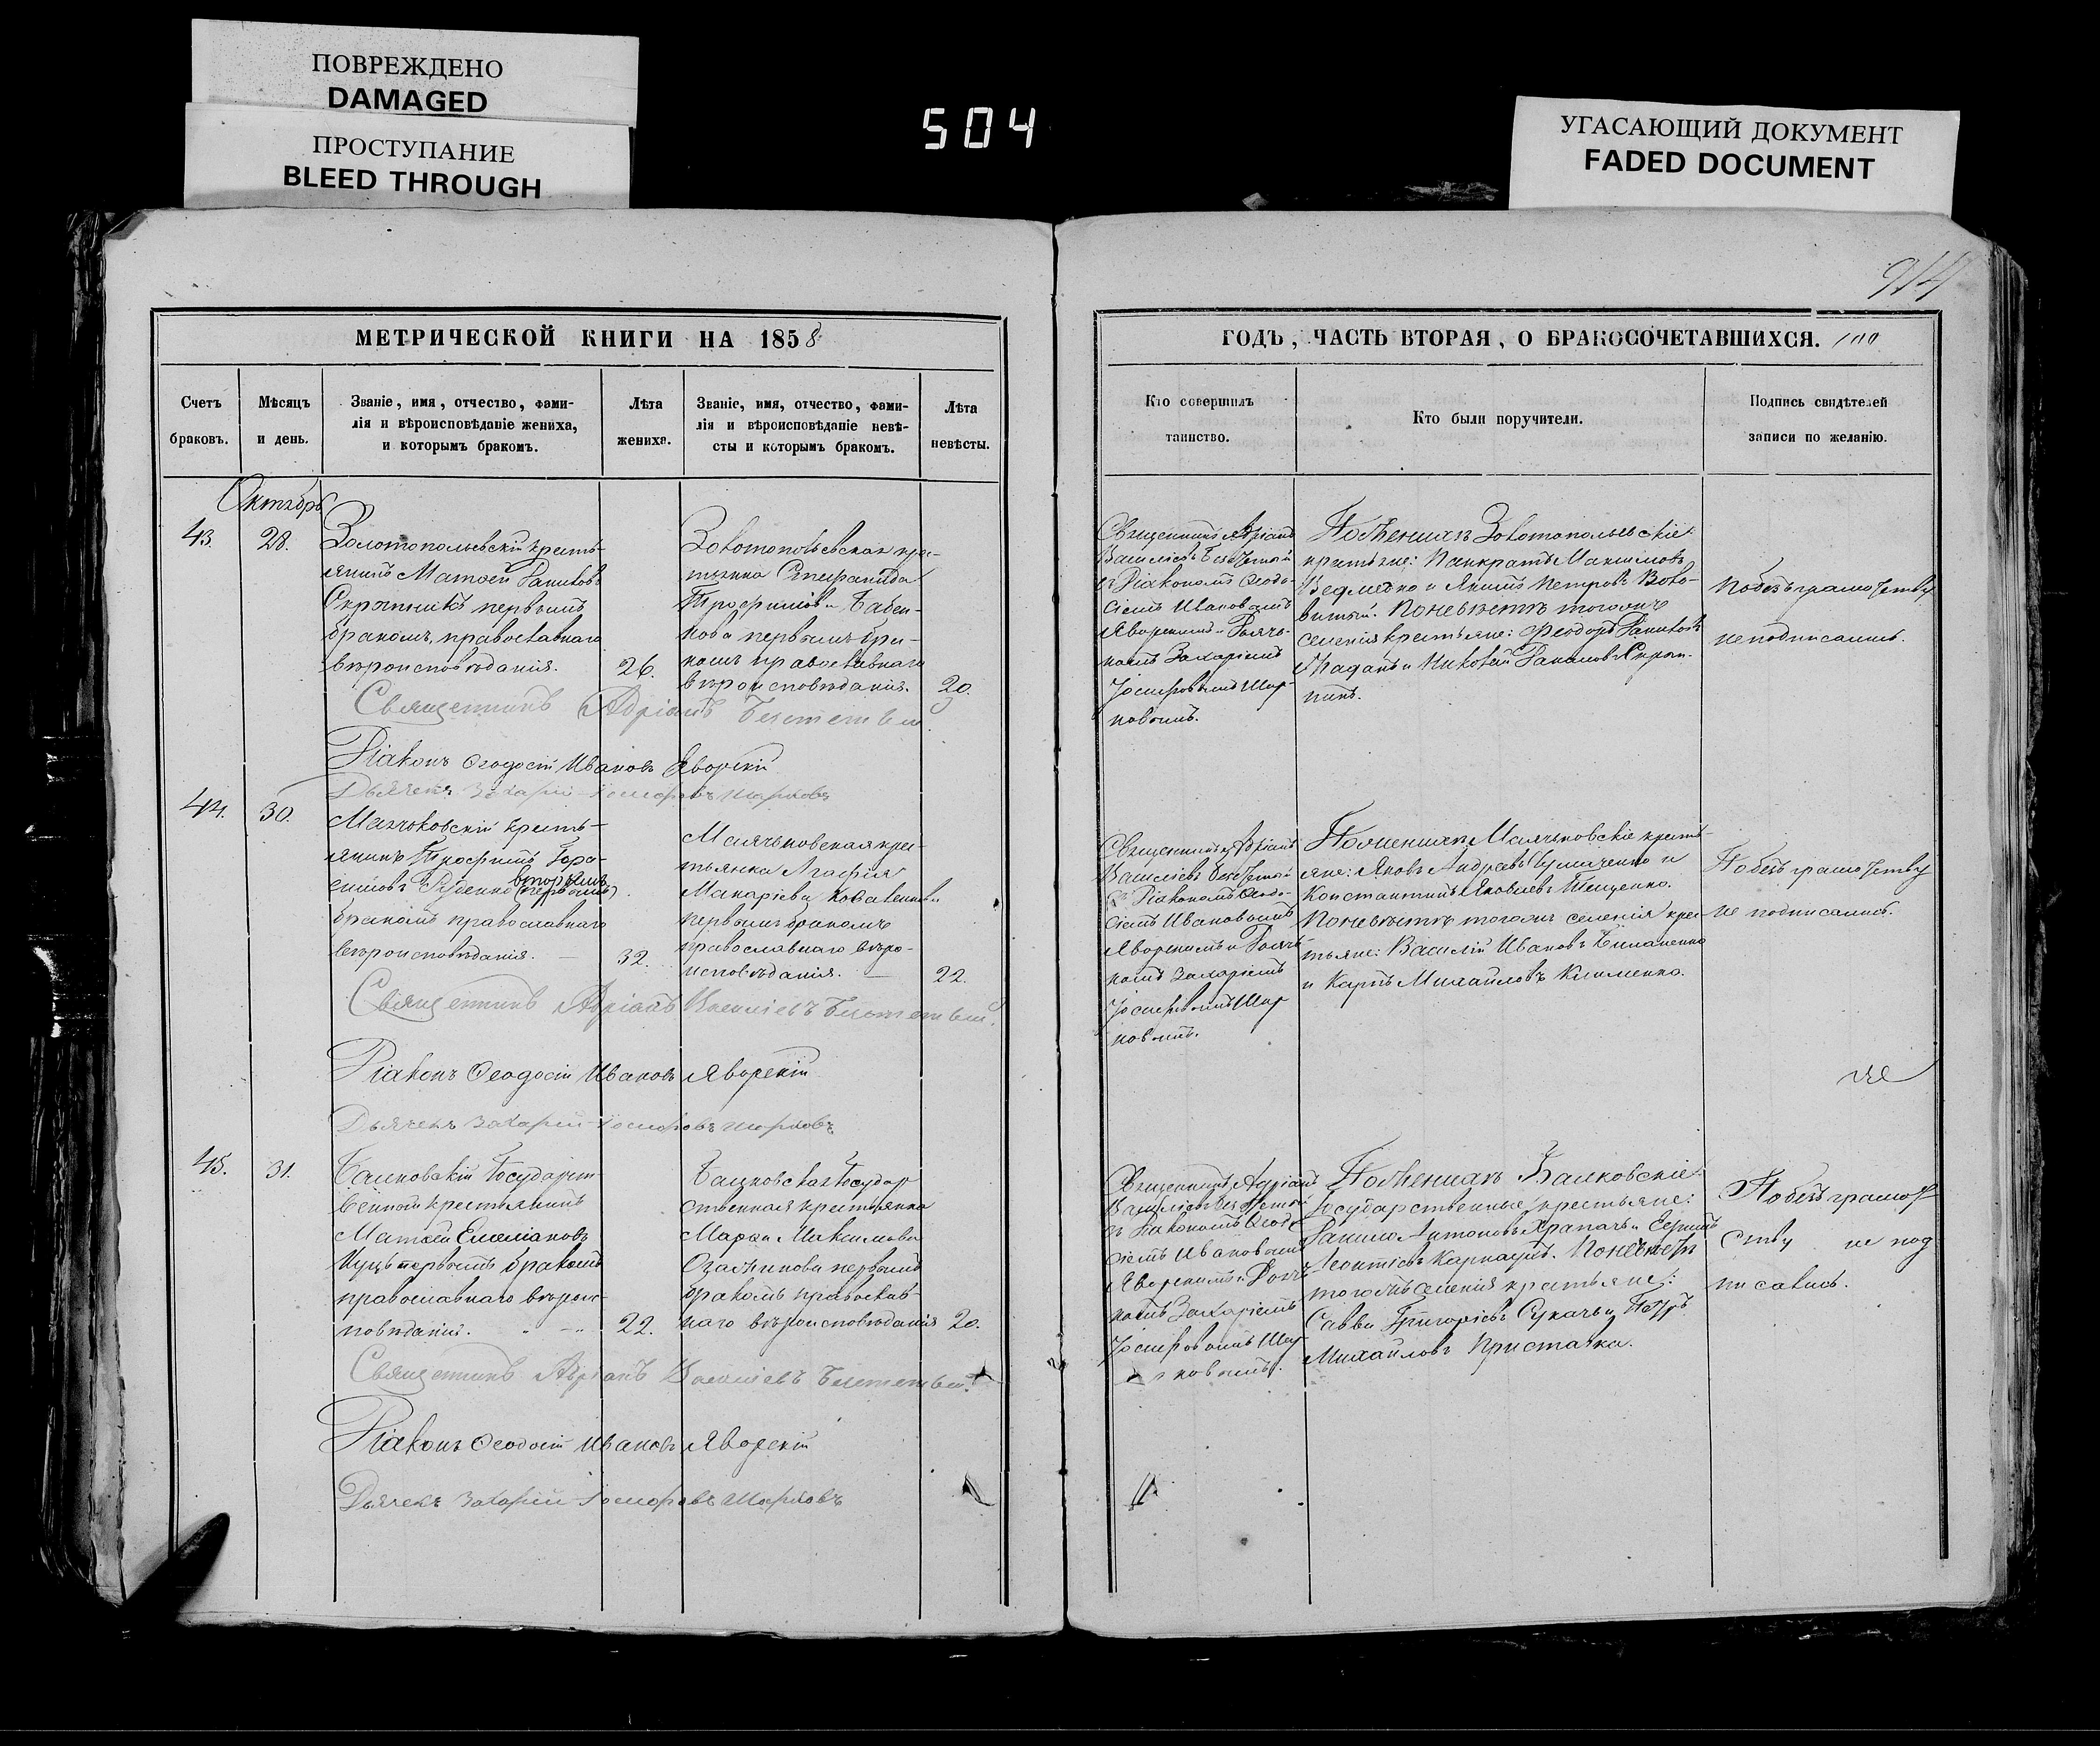 ПОВРЕЖДЕНО
DAMAGED
ПРОСТУПАНИЕ
BLEED THROUGH
504
УГАСАЮЩИЙ ДОКУМЕНТ
FADED DOCUMENT
914
МЕТРИЧЕСКОЙ КНИГИ НА 1858
Счетъ
браковъ.
Мѣсяцъ
и день.
Званіе, имя, отчество, фами-
лія и вѣроисповѣданіе жениха,
и которымъ бракомъ.
Лѣта
жениха.
Званіе, имя, отчество, фами-
лія и вѣроисповѣданіе невѣ-
сты и которымъ бракомъ.
Лѣта
невѣсты.
Октябрь
43.
28.
Золотопольевскій кресть-
янинъ Матѳей
первымъ
бракомъ, православнаго
вѣроисповѣданія.
26.
Золотопольевская кре-
стьянка Стефанида
Трофимова Бабен-
кова первымъ бра-
комъ православнаго
вѣроисповѣданія.
20.
Священникъ Адріанъ
Діаконъ Ѳеодосій Ивановъ Яворскій
Дьячекъ Захарій Іосифовъ Шарковъ
44.
30.
кресть-
янинъ Трофимъ Гера-
симовъ Руденко вторымъ (первымъ)
бракомъ православнаго
вѣроисповѣданія.
32.
крес-
тьянка Агафія
Макаріева Коваленкова
первымъ бракомъ
православнаго вѣро-
исповѣданія.
22.
Священникъ Адріанъ Василіевъ
Діаконъ Ѳеодосій Ивановъ Яворскій
Дьячекъ Захарій Іосифовъ Шарковъ
45.
31.
Балковскій Государст-
венный крестьянинъ
Матѳей Емеліановъ
Куцъ первымъ бракомъ
православнаго вѣроис-
повѣданія.
22.
Балковская Государ
ственная крестьянка
Марѳа Максимова
первымъ
бракомъ православ-
наго вѣроисповѣданія
20.
Священникъ Адріанъ Василіевъ
Діаконъ Ѳеодосій Ивановъ Яворскій
Дьячекъ Захарій Іосифовъ Шарковъ
ГОДЪ, ЧАСТЬ ВТОРАЯ, О БРАКОСОЧЕТАВШИХСЯ. 100
Кто совершилъ
таинство.
Кто были поручители.
Подпись свидѣтелей
записи по желанію.
Священникъ Адріанъ
Василіевъ
съ Діакономъ Ѳеодо-
сіемъ Ивановымъ
Яворскимъ и Дьяч-
комъ Захаріемъ
Іосифовымъ Шар-
ковымъ.
По Женихѣ Золотопольевскіе
крестьяне: Панкратъ Максимовъ
Ведмедко и Якимъ Петровъ Воло-
витый. По невѣстѣ тогожъ
селенія крестьяне: Ѳеодоръ
и Николай
По безграмотству
не подписались.
Священникъ Адріанъ
Василіевъ
съ Діакономъ Ѳеодо-
сіемъ Ивановымъ
Яворскимъ и Дьяч-
комъ Захаріемъ
Іосифовымъ Шар
ковымъ.
По женихѣ кресть-
яне: Яковъ Андреевъ и
Константинъ Яковлевъ Тещенко.
По невѣстѣ тогожъ селенія крес
тьяне: Василій Ивановъ
и Карпъ Михайловъ Клименко.
По безграмотству
не подписались.
Священникъ Адріанъ
Василіевъ
съ Діакономъ Ѳеодо
сіемъ Ивановымъ
Яворскимъ и Дьяч-
комъ Захаріемъ
Іосифовымъ Шар
ковымъ.
По Женихѣ Балковскіе
Государственные крестьяне:
Антоновъ Храпачъ и
Леонтіевъ Карнаухъ. По невѣстѣ
тогожъ селенія крестьяне:
Савва Григоріевъ и Петръ
Михайловъ Приставка.
По безграмот
ству не под
писались.